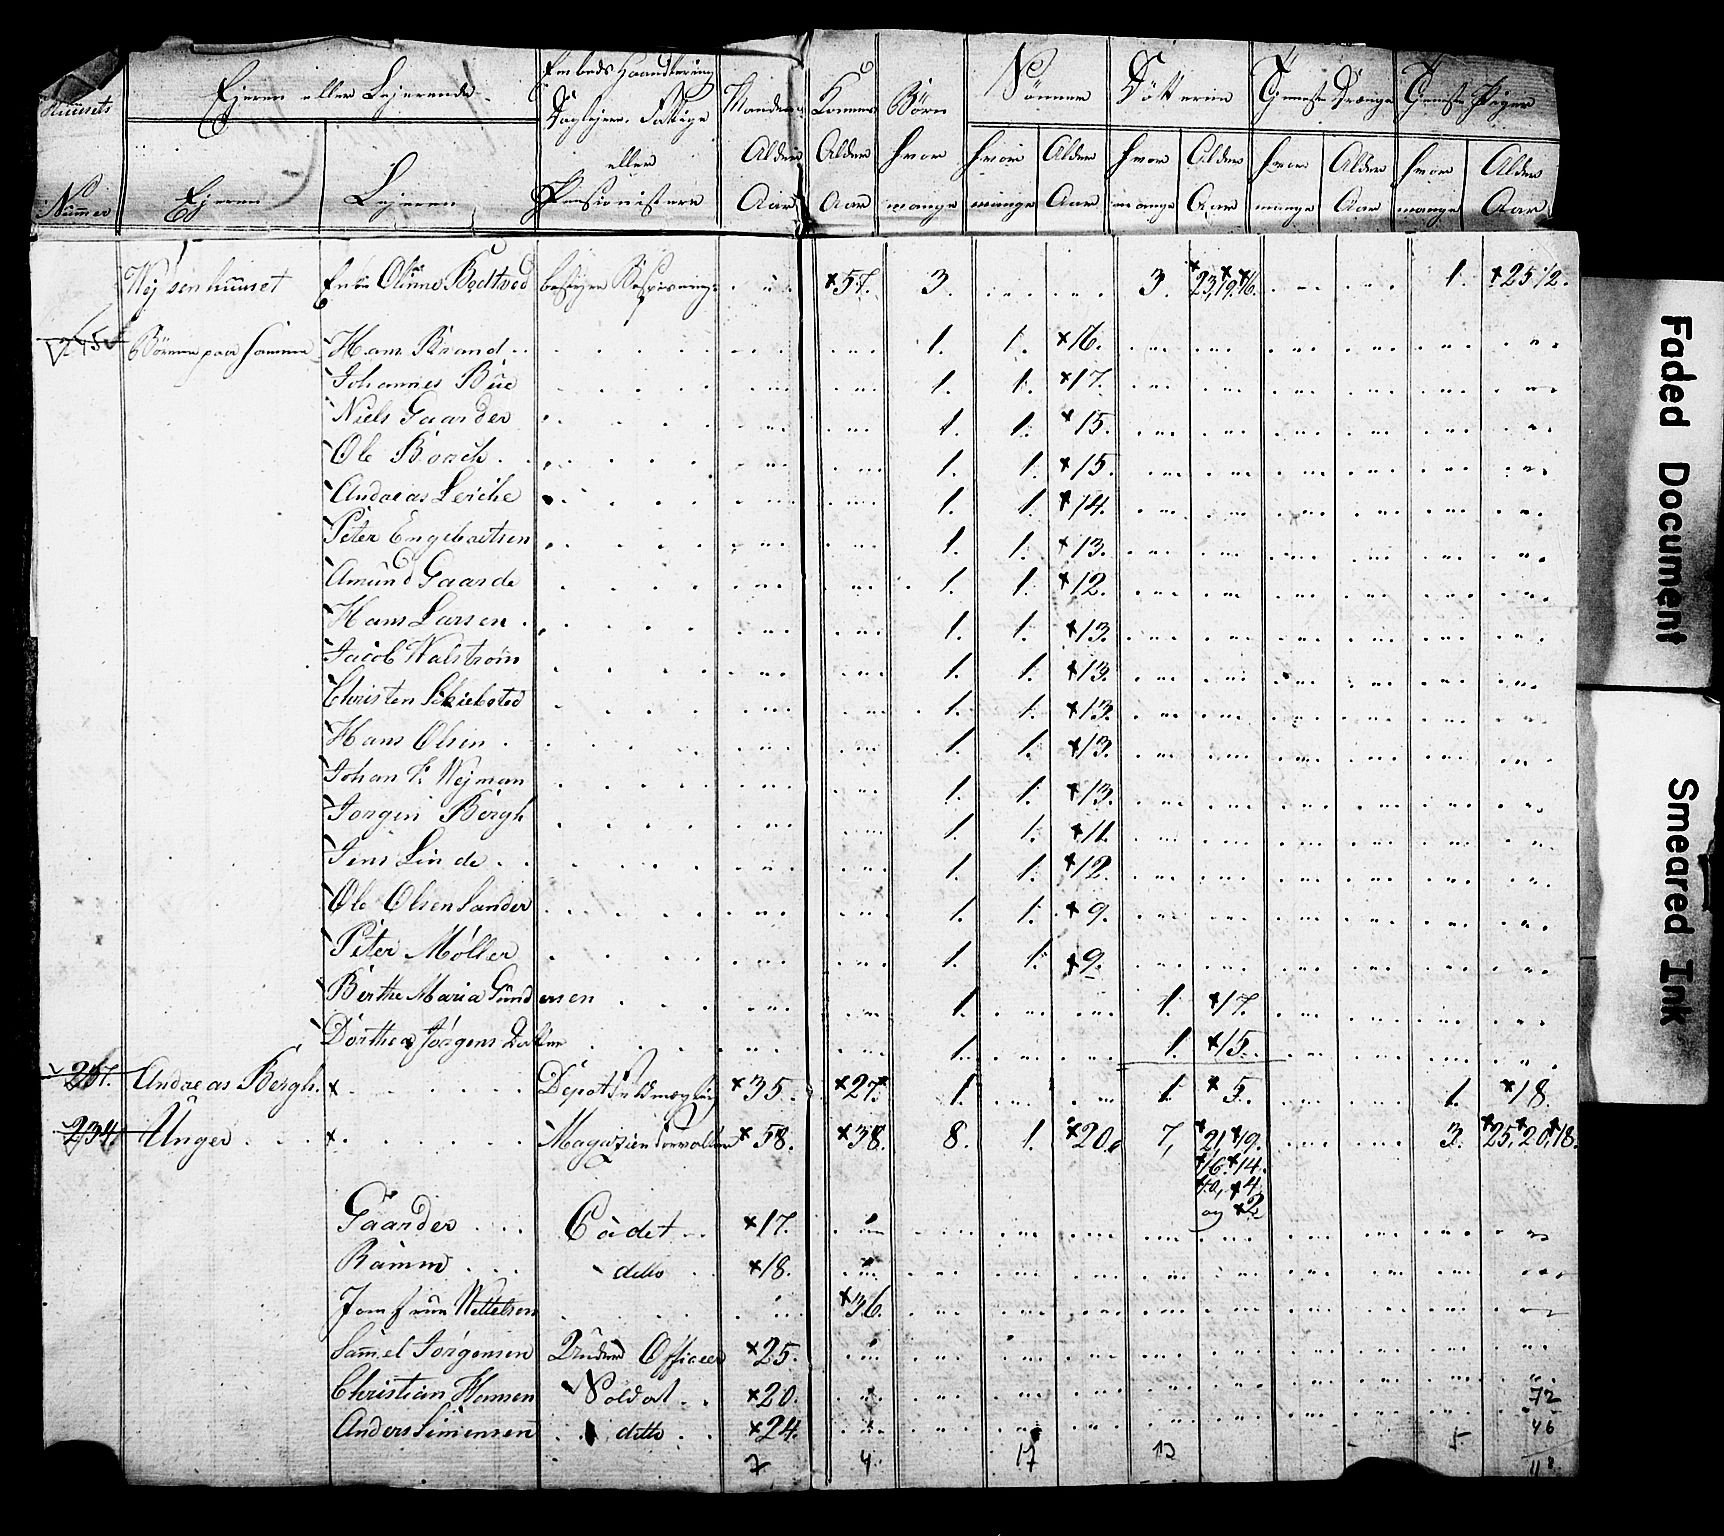 Huusets Nummer | Ejeren eller Lejerende | Embeds Haandtering Daglejere, Fattige eller Pensionistere | Manden Alder Aar | Konens Alder Aar | Börn hvor mange | Sönner | Döttrene | Tjeneste Drænge | Tjeneste Piger
Ejeren | Lejeren | hvor mange | Alder Aar | hvor mange | Alder Aar | hvor mange | Alder Aar | hvor mange | Alder Aar
Wejsenhuuset | Enke | 57. | 3. | 3. | 23, 19, 16. | 1. | 25 1/2.
Börnene paa samme | Hans Brand | 1. | 1. | 16.
Johannes Bue | 1. | 1. | 17.
Niels Gaarder | 1. | 1. | 15.
Ole Borch | 1. | 1. | 15.
Andreas Leiche | 1. | 1. | 14.
Peter Engebretsen | 1. | 1. | 13.
Amund Gaarde | 1. | 1. | 12.
Hans Larsen | 1. | 1. | 13.
Jacob Walstrøm | 1. | 1. | 13.
Christen | 1. | 1. | 13.
Hans Olsen | 1. | 1. | 13.
Johan Wejman | 1. | 1. | 13.
Jørgen Bergh | 1. | 1. | 11.
Jens Linde | 1. | 1. | 12.
Ole Olsen Sander | 1. | 1. | 9.
Peter Møller | 1. | 1. | 9.
Birthe Maria Gundersen | 1. | 1. | 17.
Dorthea Jørgens Datter | 1. | 1. | 15.
257. | Andreas Bergh. | 35. | 27. | 1. | 1. | 5. | 1. | 18.
234 | Unger | Magazienforvalter | 58. | 38. | 8. | 1. | 20. | 7, | 21, 19. | 3. | 25, 20, 18.
16. 14.
10, 4,
og 2
Gaarder | Cadet | 17.
Ramm | ditto | 18.
Jomfrue | 36.
Samuel Jørgensen | Under Officeer | 25.
Christian Hansen | Soldat | 20. | 72
Anders Simensen | ditto | 24. | 46
7 | 4 | 17 | 13 | 5 | 118
Faded Document
Smeared Ink